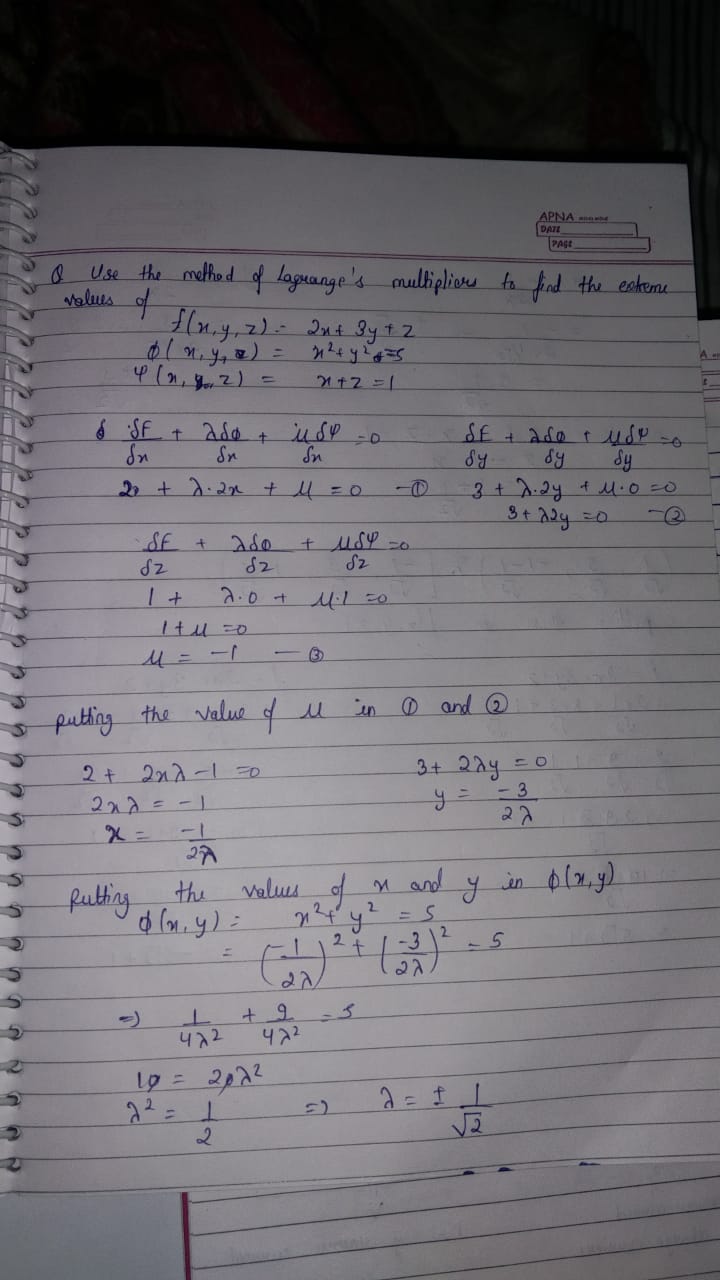 APNA
DATE
PAGE
Q Use the method of Lagrange's multipliers to find the extreme
values of
f(x,y,z) = 2x + 3y + z
ϕ(x,y,z) = x² + y² = 5
Ψ(x,y,z) = x+z = 1
δF/δx + λδϕ/δx + μδΨ/δx = 0    δF/δy + λδϕ/δy + μδΨ/δy = 0
2 + λ·2x + μ = 0 — ①    3 + λ·2y + μ·0 = 0
3 + λ2y = 0 — ②
δF/δz + λδϕ/δz + μδΨ/δz = 0
1 + λ·0 + μ·1 = 0
1 + μ = 0
μ = -1 — ③
putting the value of μ in ① and ②
2 + 2xλ - 1 = 0    3 + 2λy = 0
2xλ = -1    y = -3/2λ
x = -1/2λ
Putting the values of x and y in ϕ(x,y)
ϕ(x,y) = x² + y² = 5
= (-1/2λ)² + (-3/2λ)² = 5
=> 1/4λ² + 9/4λ² = 5
10 = 20λ²
λ² = 1/2 => λ = ± 1/√2